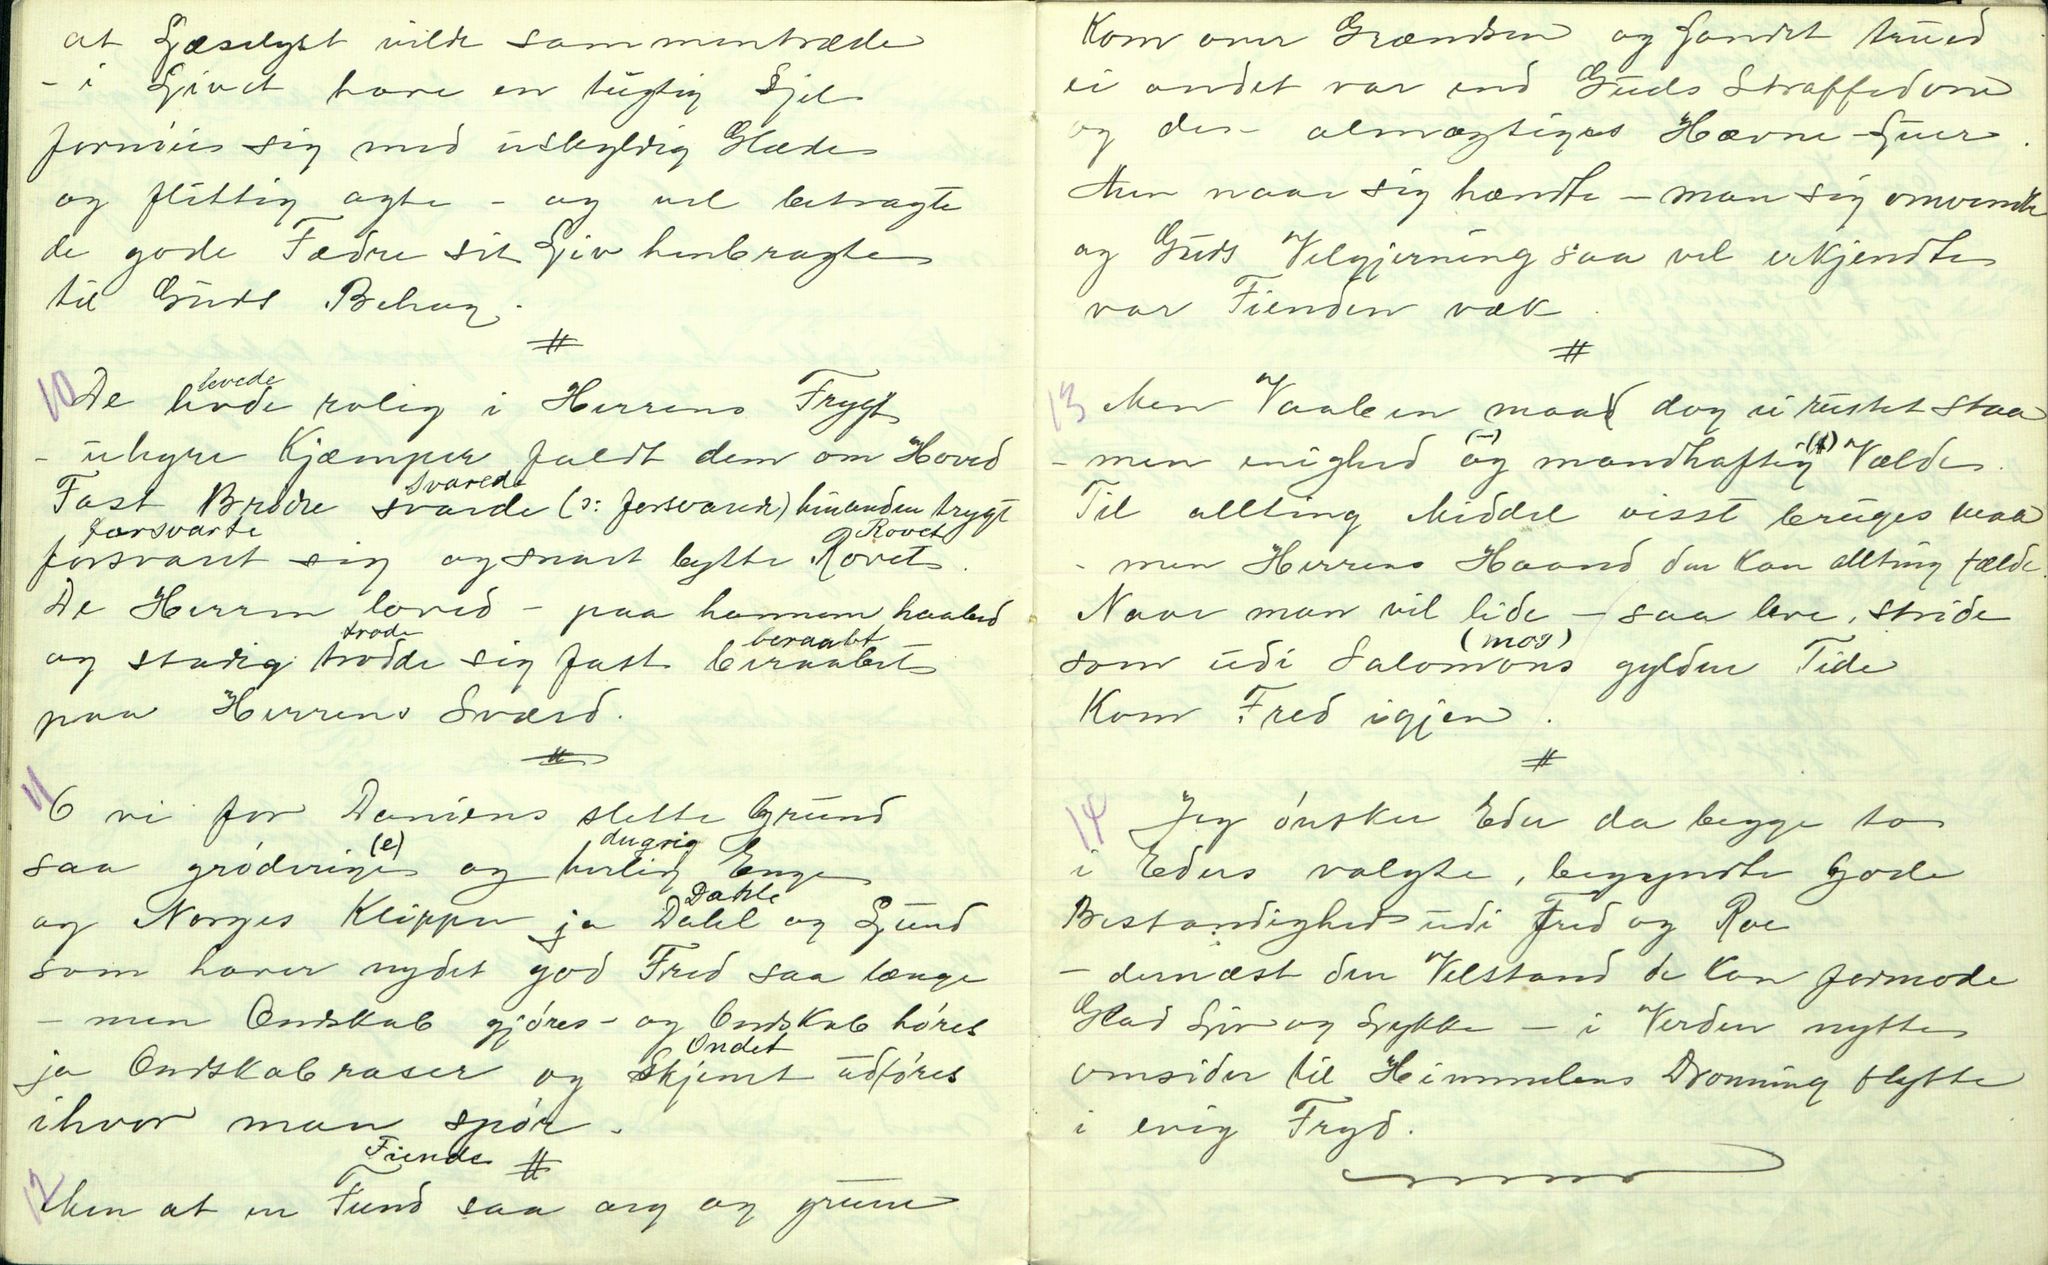 at Læselyst vilde sammentræde
- i Livet have en tugtig Sjel
fornøies sig med uskyldig Glæde
og flittig agte - og vel betragte
de gode Fædre sit Liv henbragte
til Guds Behag.
#
levede
10 De levde rolig i Herrens Frygt
- uhyre Kjæmper faldt dem om Hoved
svarede
Fast Brødre svarde (ɔ: forsvarede) hinanden trygt
forsvarte Rovet
forsvaret sig og snart bytte Rovet.
De Herren loved - paa hannem haabed
trode beraabt
og stadig trodde sig fast beraabet
paa Herrens Sværd.
#
11 O vi for Daniens slette Grund
(e) dugrig
saa grøderige og herlig Enge
Dahle
og Norges Klipper ja Dahl og Lund
som haver nydet god Fred saa længe
- men Ondskab gjøres - og Ondskab høres
Ondet
ja Ondskab raser og Skjemt udføres
ihvor man spør.
Fiende #
12 Men at en Fiend saa arg og grum
Kom over Grændsen og Landet trued
ei andet var end Guds Straffedom
og den almægtiges Hævne-Luer.
Men naar sig hændte - man sig omvendte
og Guds Velgjerning saa vel erkjendte
var Fienden væk.
#
13 Men Vaaben maa dog ei rustet staa
(-) (t)
- men enighed og mandhaftig Vælde.
Til allting Middel visst bruges maa
- men Herrens Haand den kan allting fælde.
Naar man vil lide - saa lære stride
(mos)
som udi Salomons gyldne Tide
Kom Fred igjen.
#
14 Jeg ønsker Eder da begge to
i Eders valgte, begyndte Gode
Bestandighed udi Fred og Roe
- dernæst den Velstand de kan formode
Glad Liv og Lykke - i Verden nytte
omsider til Himmelens Dronning flytte
i evig Fryd.